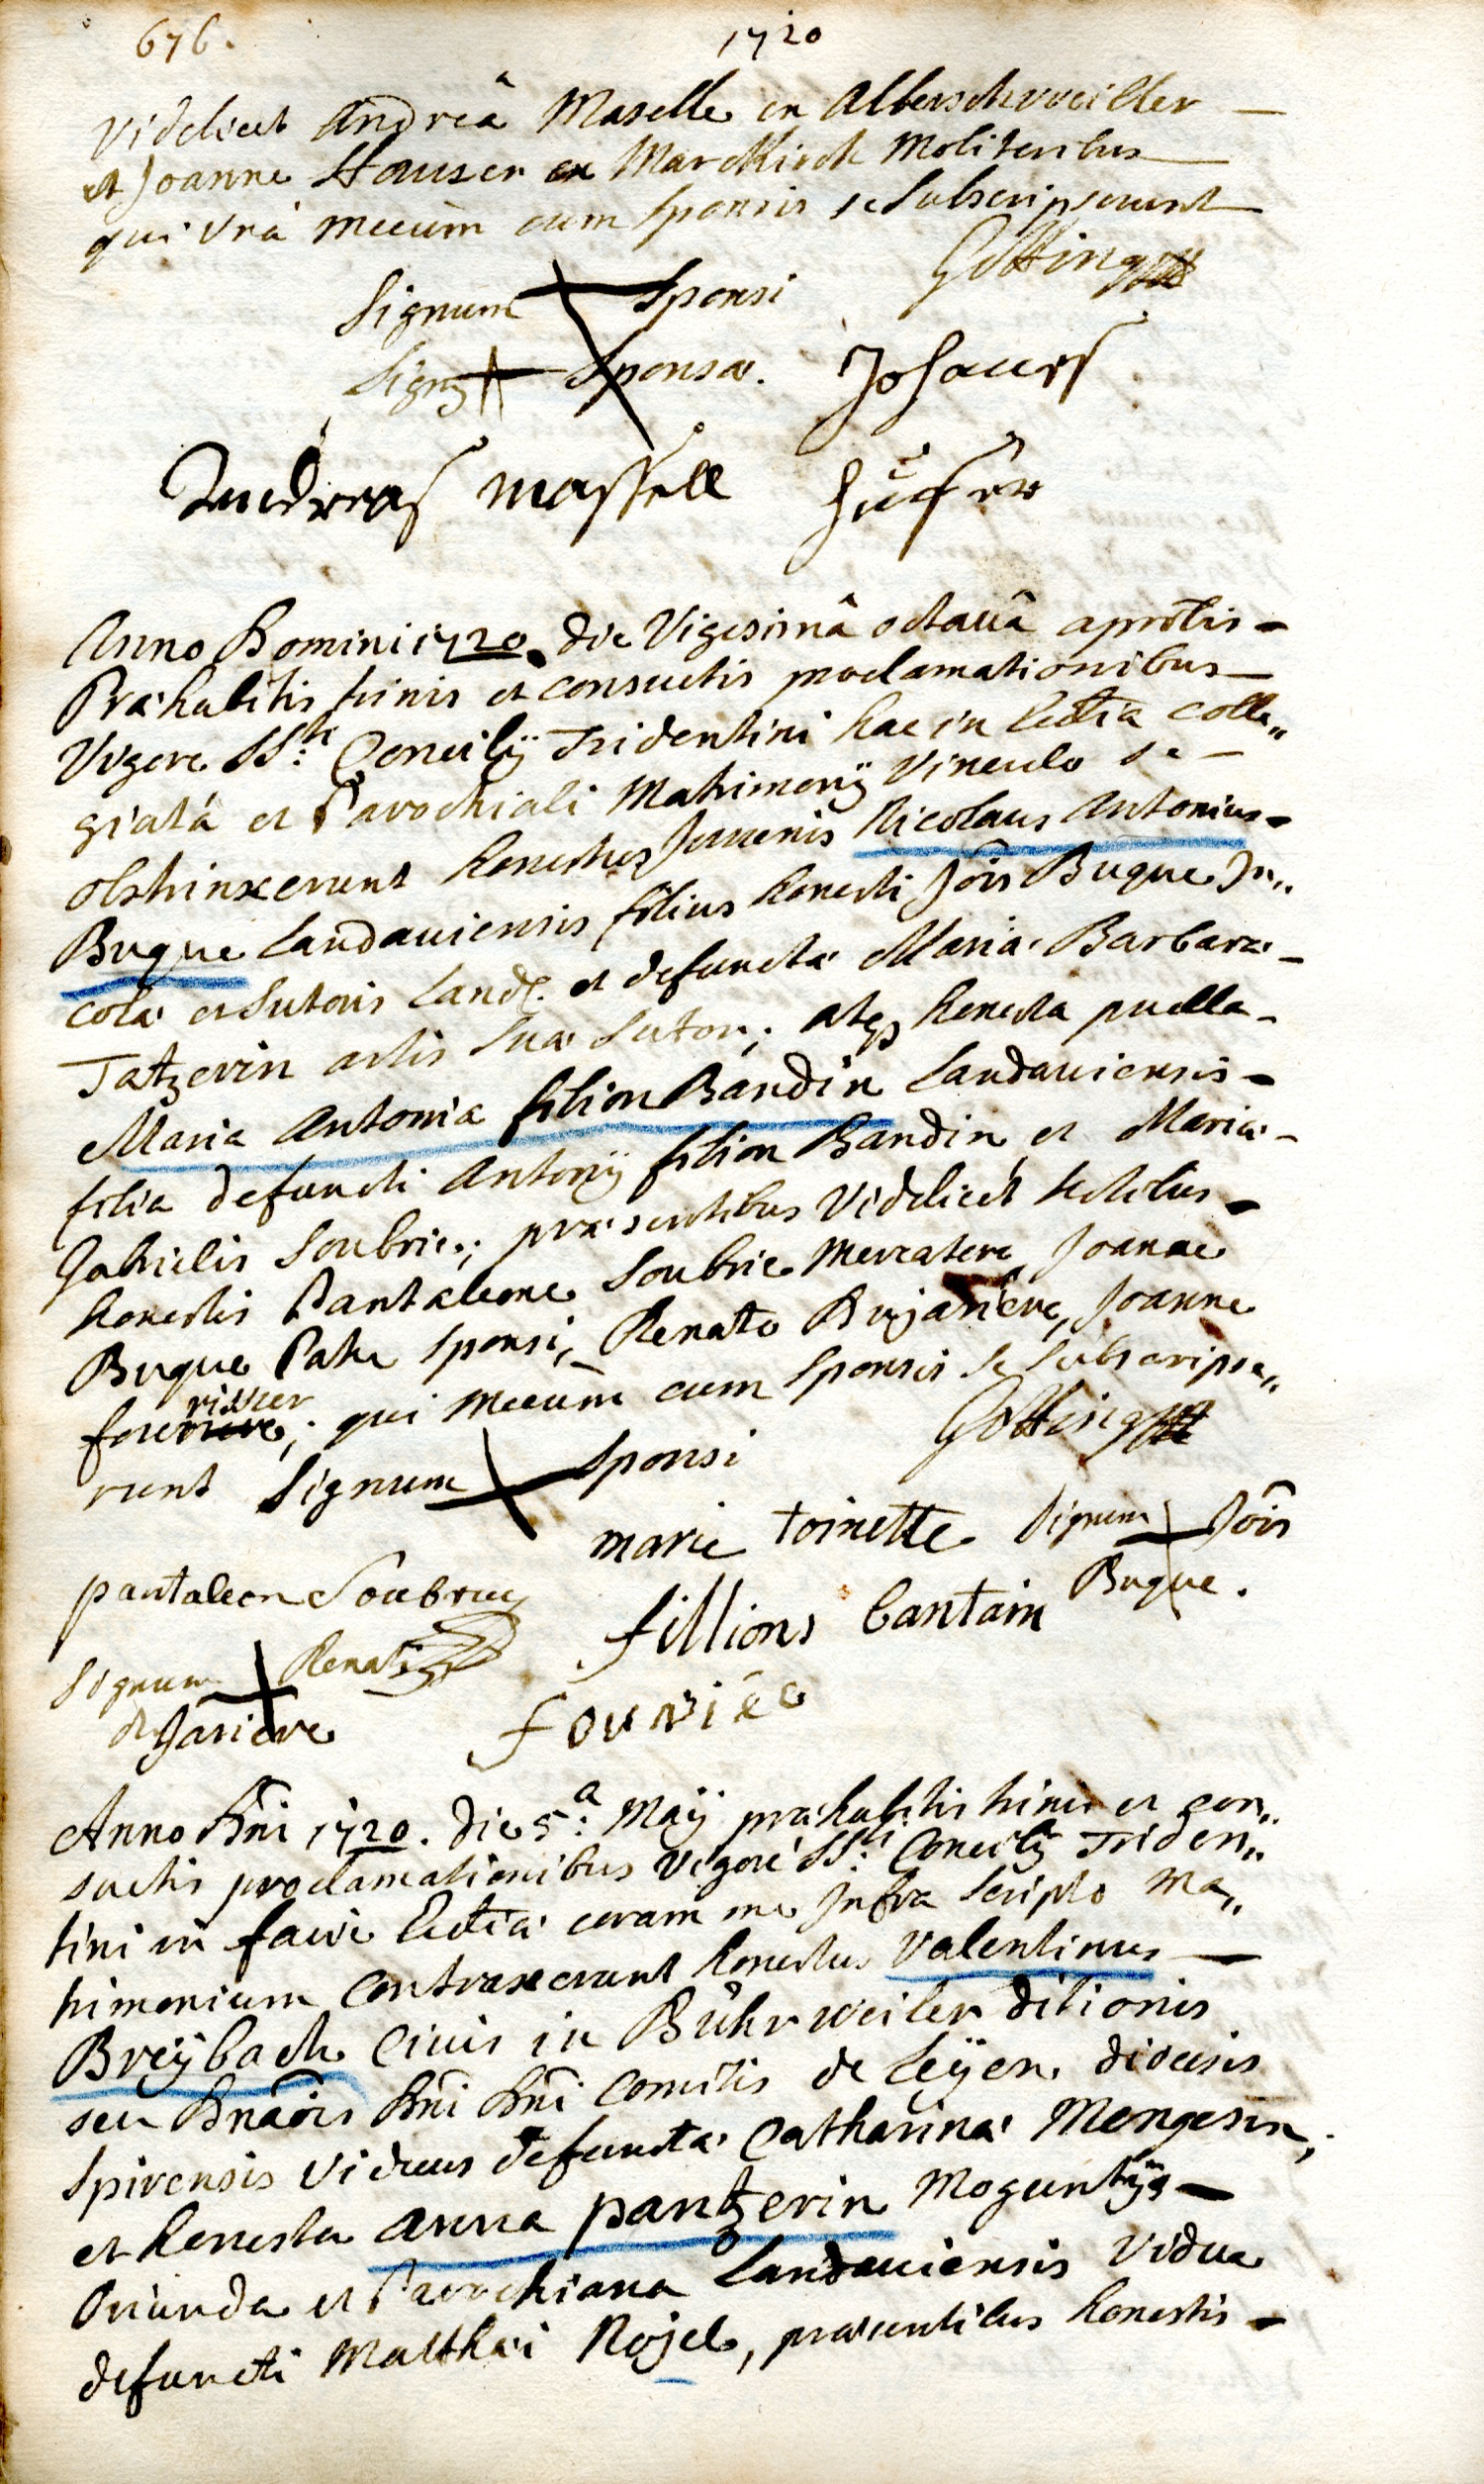 676.
1720
Videlicet Andreâ Maselle ex Alberschweiller
et Joanne Hauser ex Marckirch Molitoribus
qui Unà mecum cum sponsis se subscripserunt
Götting
Signum Sponsi
Sign Sponsæ. Johannes
Andreas Massell
Anno Domini 1720. die Vigesimâ octauâ aprilis
Præhabitis trinis et consuetis proclamationibus
Vigore SS:ti Concilÿ Tridentini hac in Ecclia colle„
giatâ et Parochiali Matrimonÿ Vinculo se
obstrinxerunt honestus Juvenis Nicolaus Antonius
Buque Landauiensis filius honesti Jois Buque In„
colæ et Sutoris Land. et defunctæ Mariæ Barbaræ
Tatzerin artis suæ Sutor; atq honesta puella
Maria Antonia filion Bandin Landauiensis
filia defuncti Antonÿ filion Bandin et Mariæ
Gabrielis Soubrie; præsentibus Videlicet testibus
honestis Pantaleone Soubrie Mercatore, Joanne
Buque Patre sponsi, Renato Dujariere, Joanne
risser
qui mecum cum sponsis se subscripse„
runt Signum Sponsi
Götting
marie toinette
Signum Jois
Buque.
pantaleon Soubrie
fillions bantain
Signum Renati
dujariere
fouriée
Anno Dni 1720. die 5:a Maÿ præhabitis trinis et con„
suetis proclamationibus Vigore SS:ti Concilÿ Triden„
tini in facie Ecclia coram me Infra scripto Ma„
trimonium Contraxerunt honestus Valentinus
Breÿbach Ciuis in Bührweiler ditionis
seu Dnaõis Dni Dni Comitis de Leÿen diœcesis
Spirensis Viduus defunctæ Catharinæ Mengesin,
et honesta Anna pantzerin Moguntÿs
Oriunda et Parochiana Landauiensis Vidua
defuncti Matthæi Rojel, præsentibus honestis